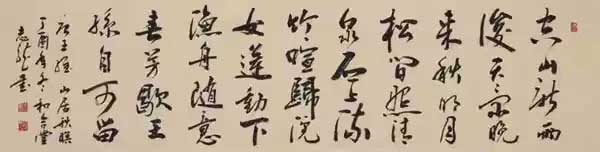 空山新雨
後天氣晚
来秋明月
松間照清
泉石上流
竹喧歸浣
女蓮動下
漁舟随意
春芳歇王
孫自可留
唐王維山居秋暝
丁酉年冬
書